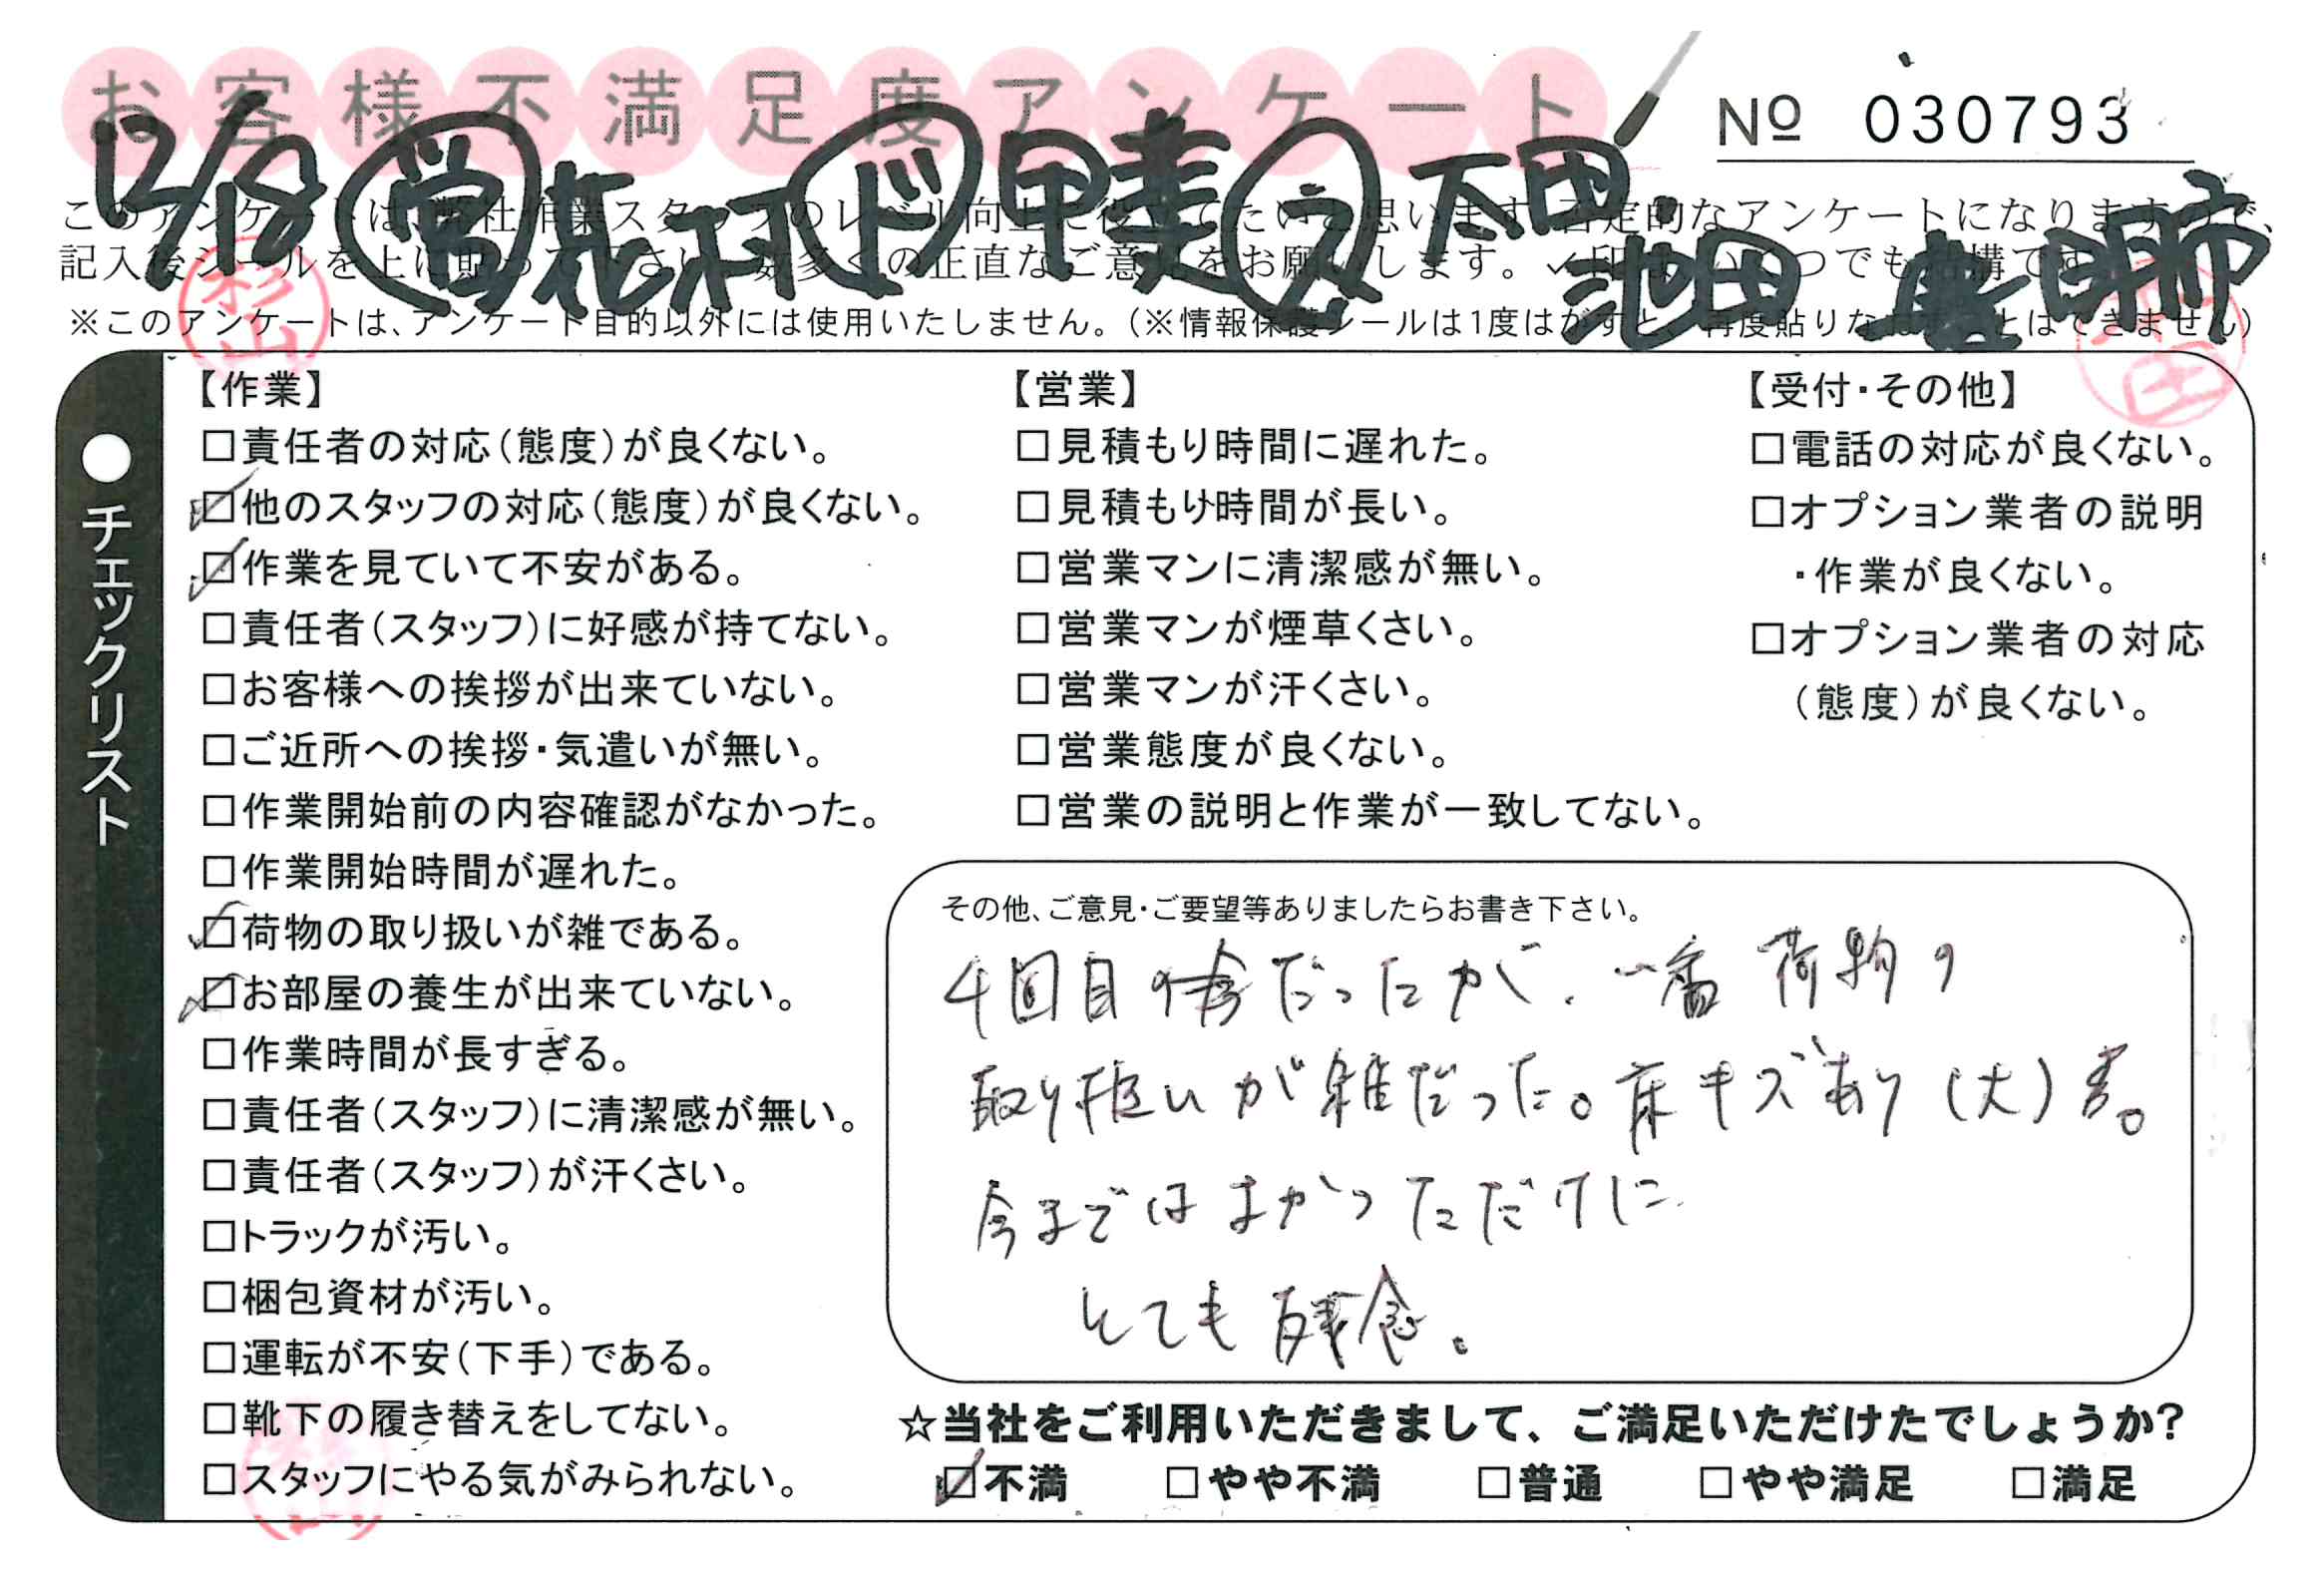 お客様不満足度アンケート
№ 030793
12/18 営 花村 ド 甲斐 下田
池田 明
このアンケートは、弊社作業スタッフのレベル向上に役立てたいと思います。否定的なアンケートになりますので、
記入後シールを上に貼って下さい。数多くの正直なご意見をお願いします。✓印はいくつでも結構です。
※このアンケートは、アンケート目的以外には使用いたしません。(※情報保護シールは1度はがすと、再度貼りなおすことはできません)
杉山
●チェックリスト
【作業】
□責任者の対応(態度)が良くない。
☑他のスタッフの対応(態度)が良くない。
☑作業を見ていて不安がある。
□責任者(スタッフ)に好感が持てない。
□お客様への挨拶が出来ていない。
□ご近所への挨拶・気遣いが無い。
□作業開始前の内容確認がなかった。
□作業開始時間が遅れた。
☑荷物の取り扱いが雑である。
☑お部屋の養生が出来ていない。
□作業時間が長すぎる。
□責任者(スタッフ)に清潔感が無い。
□責任者(スタッフ)が汗くさい。
□トラックが汚い。
□梱包資材が汚い。
□運転が不安(下手)である。
□靴下の履き替えをしてない。
□スタッフにやる気がみられない。
【営業】
□見積もり時間に遅れた。
□見積もり時間が長い。
□営業マンに清潔感が無い。
□営業マンが煙草くさい。
□営業マンが汗くさい。
□営業態度が良くない。
□営業の説明と作業が一致してない。
【受付・その他】
□電話の対応が良くない。
□オプション業者の説明
・作業が良くない。
□オプション業者の対応
(態度)が良くない。
その他、ご意見・ご要望等ありましたらお書き下さい。
4回目の会だったが、一番荷物の
取り扱いが雑だった。床キズあり(大)
今まではよかっただけに
とても残念。
☆当社をご利用いただきまして、ご満足いただけたでしょうか?
☑不満 □やや不満 □普通 □やや満足 □満足